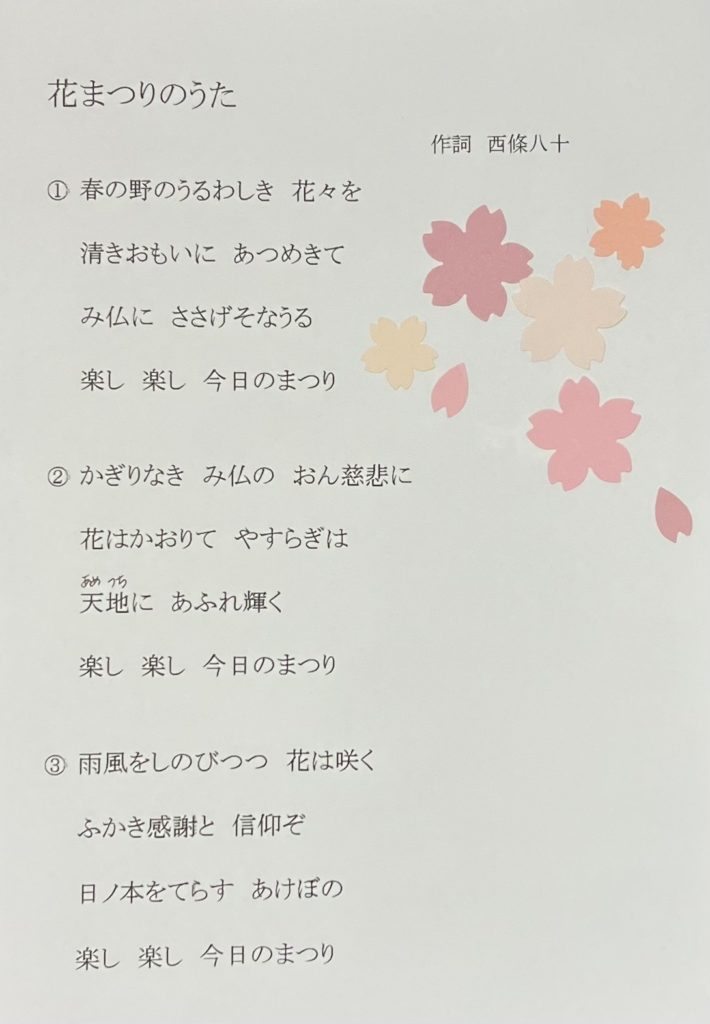 花まつりのうた
作詞 西條八十
① 春の野のうるわしき 花々を
清きおもいに あつめきて
み仏に ささげそなうる
楽し 楽し 今日のまつり
② かぎりなき み仏の おん慈悲に
花はかおりて やすらぎは
あめ つち
天地に あふれ輝く
楽し 楽し 今日のまつり
③ 雨風をしのびつつ 花は咲く
ふかき感謝と 信仰ぞ
日ノ本をてらす あけぼの
楽し 楽し 今日のまつり